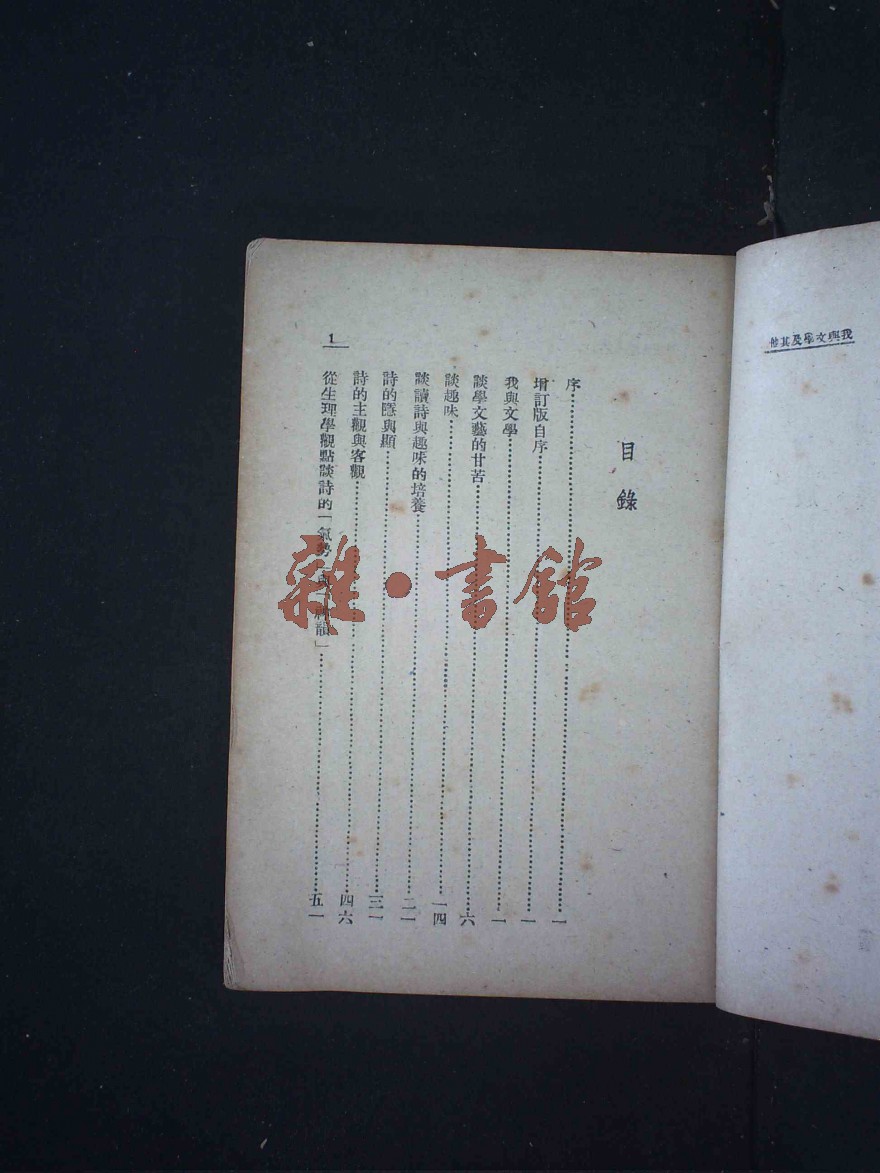 我與文學及其他
目錄
序……一
增訂版自序……一
我與文學……一
談學文藝的甘苦……六
談趣味……一四
談讀詩與趣味的培養……二一
詩的隱與顯……三一
詩的主觀與客觀……四六
從生理學觀點談詩的「氣勢」與「神韻」……五一
1
雜·書館